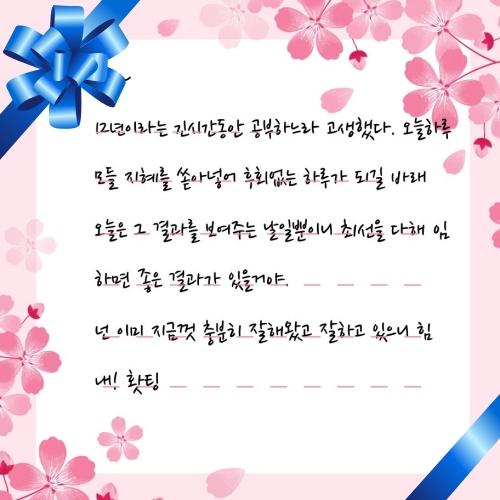 12년이라는 긴시간동안 공부하느라 고생했다. 오늘하루
모들 지혜를 쏟아넣어 후회없는 하루가 되길 바래
오늘은 그 결과를 보여주는 날일뿐이니 최선을 다해 임
하면 좋은 결과가 있을거야.
넌 이미 지금껏 충분히 잘해왔고 잘하고 있으니 힘
내! 홧팅